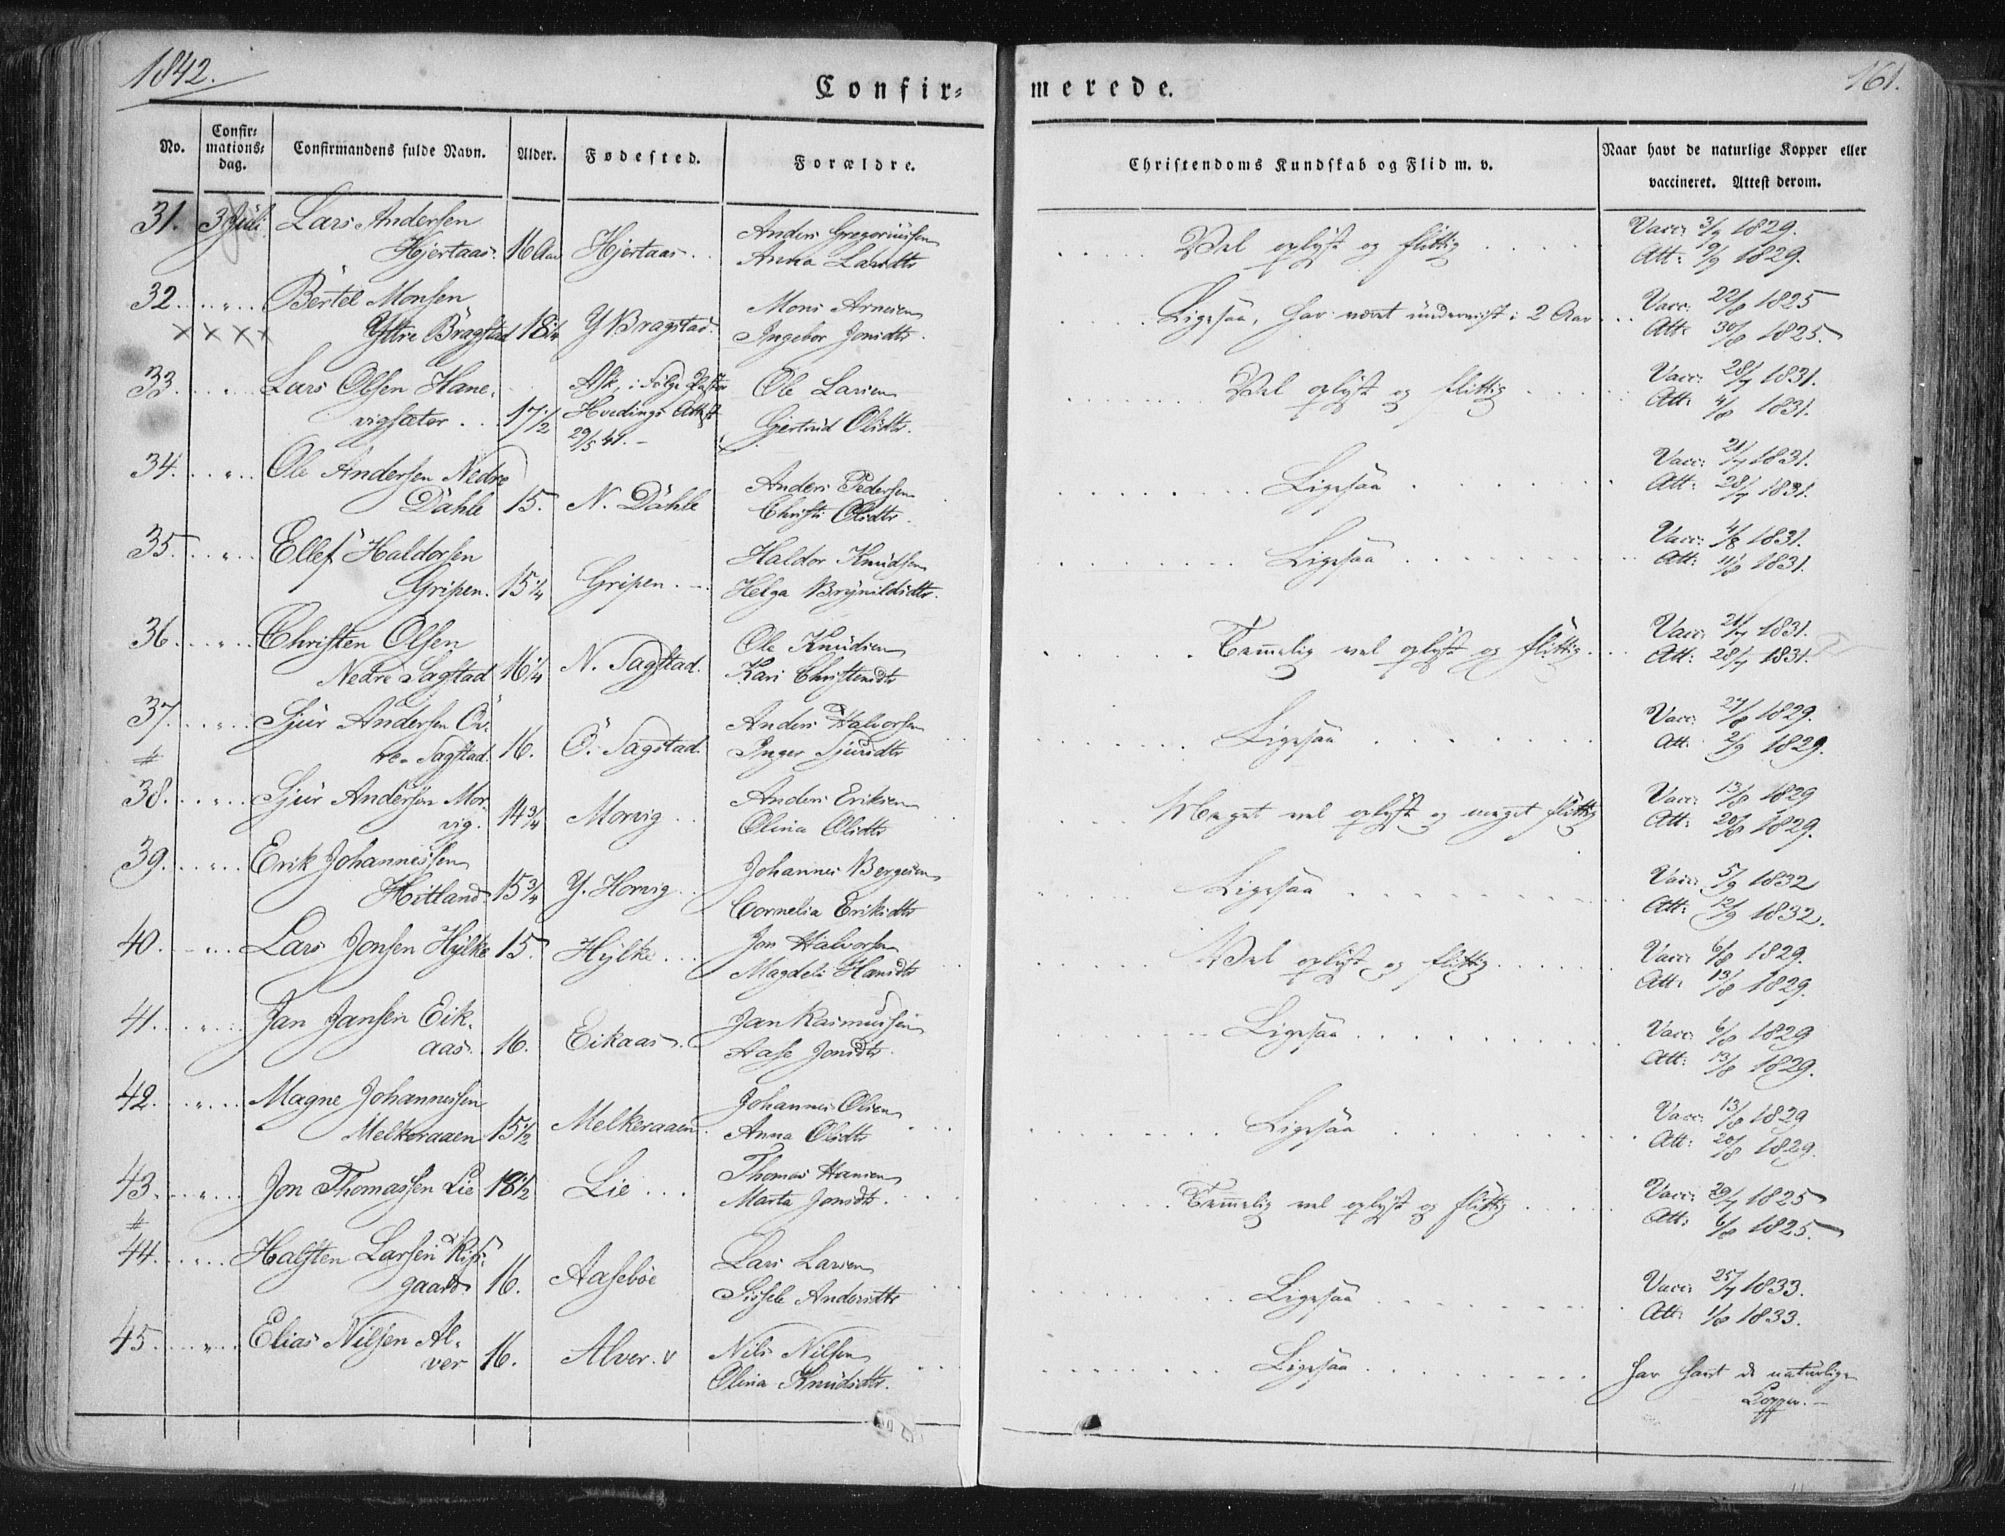 1842.
161.
Confir= merede.
No. Confir=mations=dag. Confirmandens fulde Navn. Alder. Fødested. Forældre. Christendoms Kundskab og Flid m. v. Naar havt de naturlige Kopper eller vaccineret. Attest derom.
31. 3 Juli Lars Andersen Anders Gregoriussen Vacc: 3/9 1829.
Hjertaas. 16 Aar Hjertaas. Anna Larsdtr Vel oplyst og flittig Att: 9/9 1829.
32. " Bertel Monsen Mons Arnesen Vacc: 22/8 1825
×××× Yttre Bragstad 18 1/4 Y Bragstad. Ingebor Jonsdtr. Ligesaa, har været undervist i 2 Aar Att: 30/8 1825.
33. " Lars Olsen Hane- Ask, i Følge Pastor Ole Larsen Vel oplyst og flittig Vacc: 28/7 1831.
vigsæter 17 1/2 Hvedings Attest Gertrud Olsdtr. Att: 4/8 1831.
29/5 41.
34. " Ole Andersen Nedre Anders Pedersen Ligesaa Vacc: 21/7 1831.
Dahle 15. N. Dahle Christi Olsdtr. Att: 28/7 1831.
35. " Ellef Haldorsen Haldor Knudsen Ligesaa Vacc: 4/8 1831.
Gripen. 15 1/4 Gripen. Helga Brynildsdtr. Att: 11/8 1831.
36. " Christen Olsen Ole Knudsen Temmelig vel oplyst og flittig Vacc: 21/7 1831.
Nedre Sagstad 16 1/4 N. Sagstad. Kari Christensdtr Att: 28/7 1831.
37. " Sjur Andersen Öv- Anders Halvorsen Ligesaa Vacc: 27/8 1829.
# re Sagstad. 16. Ö. Sagstad. Inger Sjursdtr Att: 2/9 1829.
38. " Sjur Andersen Mor- Anders Eriksen Meget vel oplyst og meget flittig Vacc: 13/8 1829
vig. 14 3/4 Morvig Olina Olsdtr Att: 20/8 1829.
39. " Erik Johannessen Johannes Bergesen Ligesaa Vacc: 5/9 1832
Hitland 15 3/4 Y. Horvig Cornelia Eriksdtr Att: 12/9 1832.
40. " Lars Jonsen Hylke 15. Hylke Jon Halvorsen Vel oplyst og flittig Vacc: 6/8 1829.
Magdeli Hansdtr Att: 13/8 1829.
41. " Jan Jansen Eik- Jan Rasmussen Ligesaa Vacc: 6/8 1829
aas. 16. Eikaas. Aase Jonsdtr. Att: 13/8 1829.
42. " Magne Johannessen Johannes Olsen Ligesaa Vacc: 13/8 1829
Melkeraaen 15 1/2 Melkeraaen. Anna Olsdtr Att: 20/8 1829.
43. " Jon Thomassen Lie 18 1/2 Lie Thomas Hansen Temmelig vel oplyst og flittig Vacc: 29/7 1825
# Marta Jonsdtr. Att: 6/8 1825.
44. " Halsten Larsen Lars Larsen Ligesaa Vacc: 25/7 1833.
gaard 16. Aasebøe Sissele Andersdtr Att: 1/8 1833.
45. " Elias Nilsen Al- Nils Nilsen Ligesaa har havt de naturlige
ver 16. Alver. v Olina Knudsdtr. Kopper.